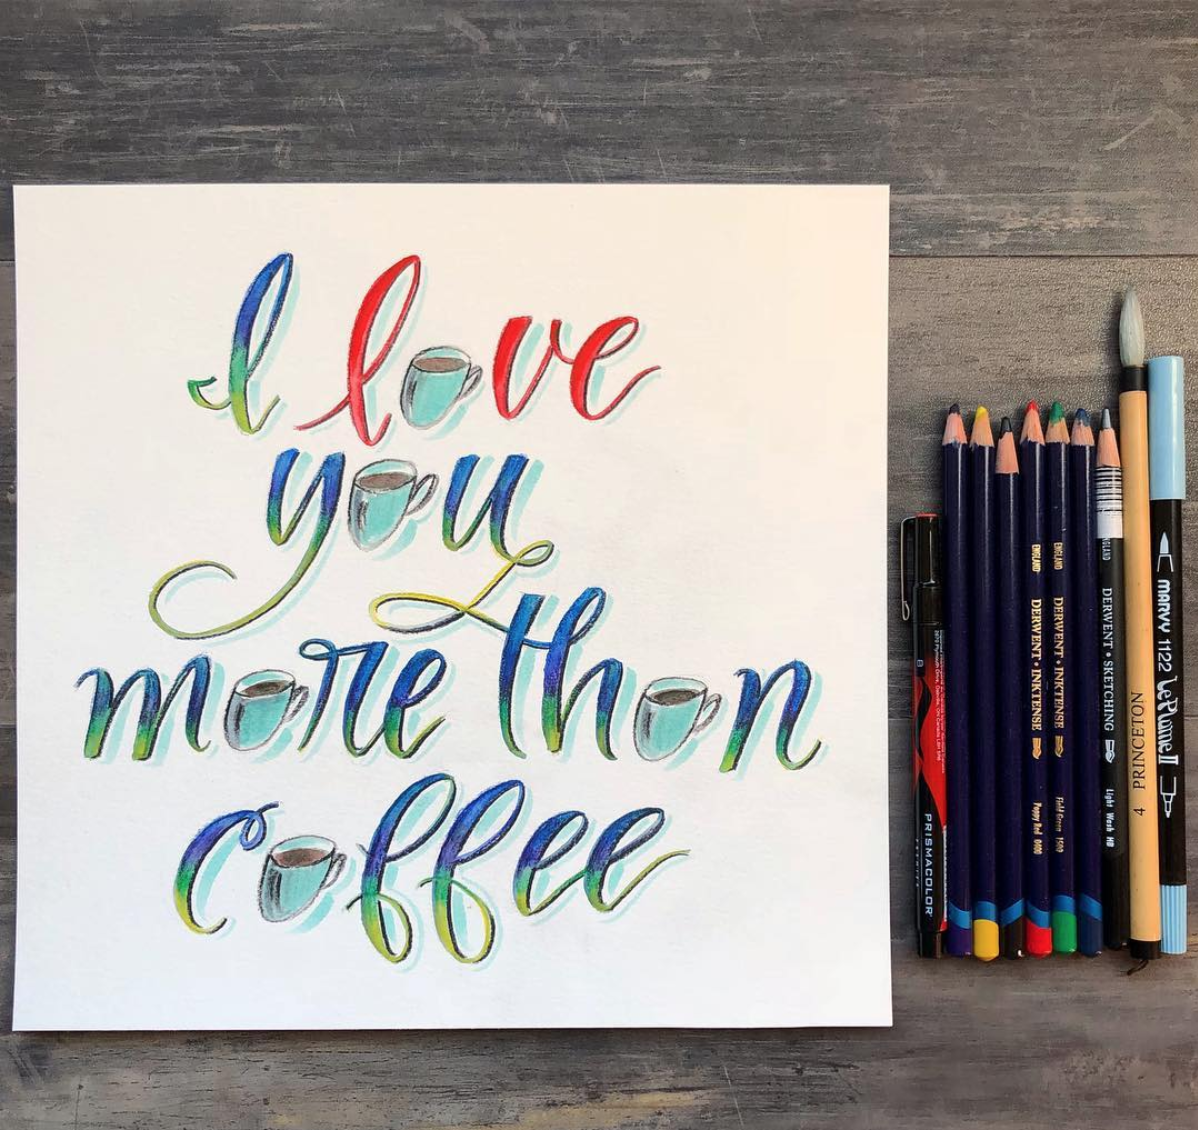 I love
you
more than
coffee
PRISMACOLOR
ENGLAND DERWENT • INKTENSE Poppy Red 0400
ENGLAND DERWENT • INKTENSE Field Green 1500
ENGLAND DERWENT • SKETCHING Light Wash HB
4 PRINCETON
MARVY 1122 LePlume II